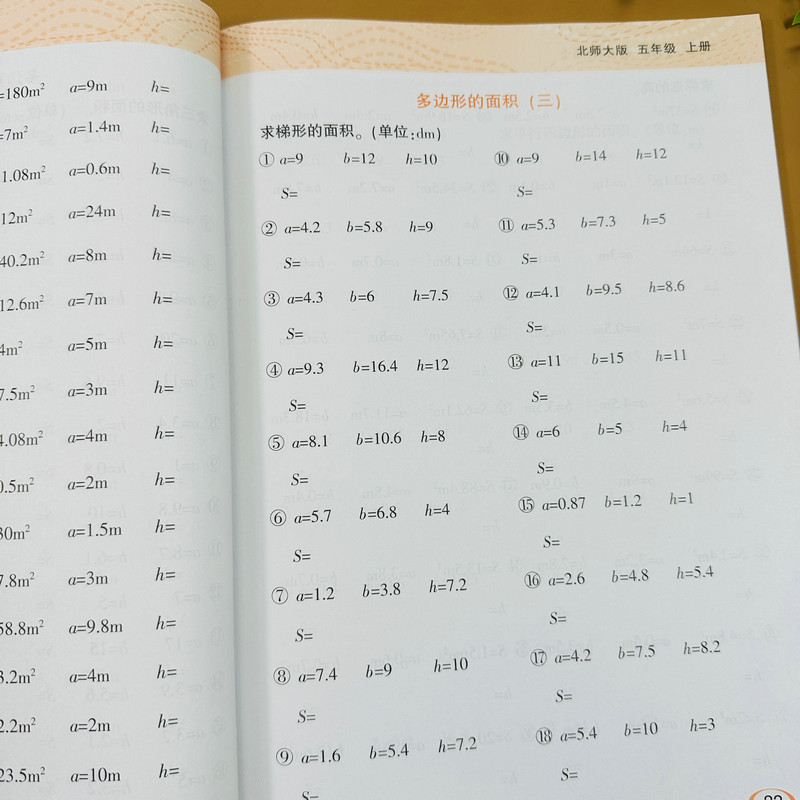 =180m² a=9m h=
=7m² a=1.4m h=
1.08m² a=0.6m h=
12m² a=24m h=
40.2m² a=8m h=
12.6m² a=7m h=
4m² a=5m h=
7.5m² a=3m h=
4.08m² a=4m h=
0.5m² a=2m h=
30m² a=1.5m h=
7.8m² a=3m h=
58.8m² a=9.8m h=
3.2m² a=4m h=
2.2m² a=2m h=
23.5m² a=10m h=
北师大版 五年级 上册
多边形的面积（三）
求梯形的面积。(单位:dm)
① a=9 b=12 h=10
S=
② a=4.2 b=5.8 h=9
S=
③ a=4.3 b=6 h=7.5
S=
④ a=9.3 b=16.4 h=12
S=
⑤ a=8.1 b=10.6 h=8
S=
⑥ a=5.7 b=6.8 h=4
S=
⑦ a=1.2 b=3.8 h=7.2
S=
⑧ a=7.4 b=9 h=10
S=
⑨ a=1.6 b=5.4 h=7.2
S=
⑩ a=9 b=14 h=12
S=
⑪ a=5.3 b=7.3 h=5
S=
⑫ a=4.1 b=9.5 h=8.6
S=
⑬ a=11 b=15 h=11
S=
⑭ a=6 b=5 h=4
S=
⑮ a=0.87 b=1.2 h=1
S=
⑯ a=2.6 b=4.8 h=5.4
S=
⑰ a=4.2 b=7.5 h=8.2
S=
⑱ a=5.4 b=10 h=3
S=